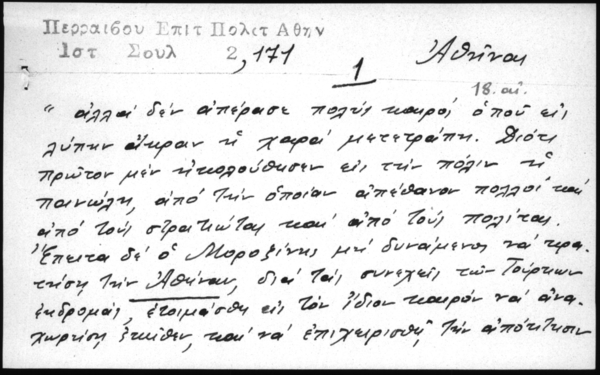 Περραιβου Επιτ Πολιτ Αθην
Ιστ Σουλ 2, 171
1
Ἀθῆναι
18. αἰ.
" ἀλλά δέν ἀπέρασε πολύς καιρός ὁποῦ εἰς
λύπην ἄκραν ἡ χαρά μετετράπη. Διότι
πρῶτον μέν ἠκολούθησεν εἰς τήν πόλιν ἡ
πανώλη, ἀπό τήν ὁποίαν ἀπέθανον πολλοί καί
ἀπό τούς στρατιώτας καί ἀπό τούς πολίτας.
Ἔπειτα δέ ὁ Μοροζίνης μή δυνάμενος νά κρα-
τήσῃ τήν Ἀθήναν, διά τάς συνεχεῖς τῶν Τούρκων
ἐκδρομάς, ἑτοιμάσθη εἰς τόν ἴδιον καιρόν νά ἀνα-
χωρήσῃ ἐκεῖθεν, καί νά ἐπιχειρισθῇ τήν ἀπόκτησιν